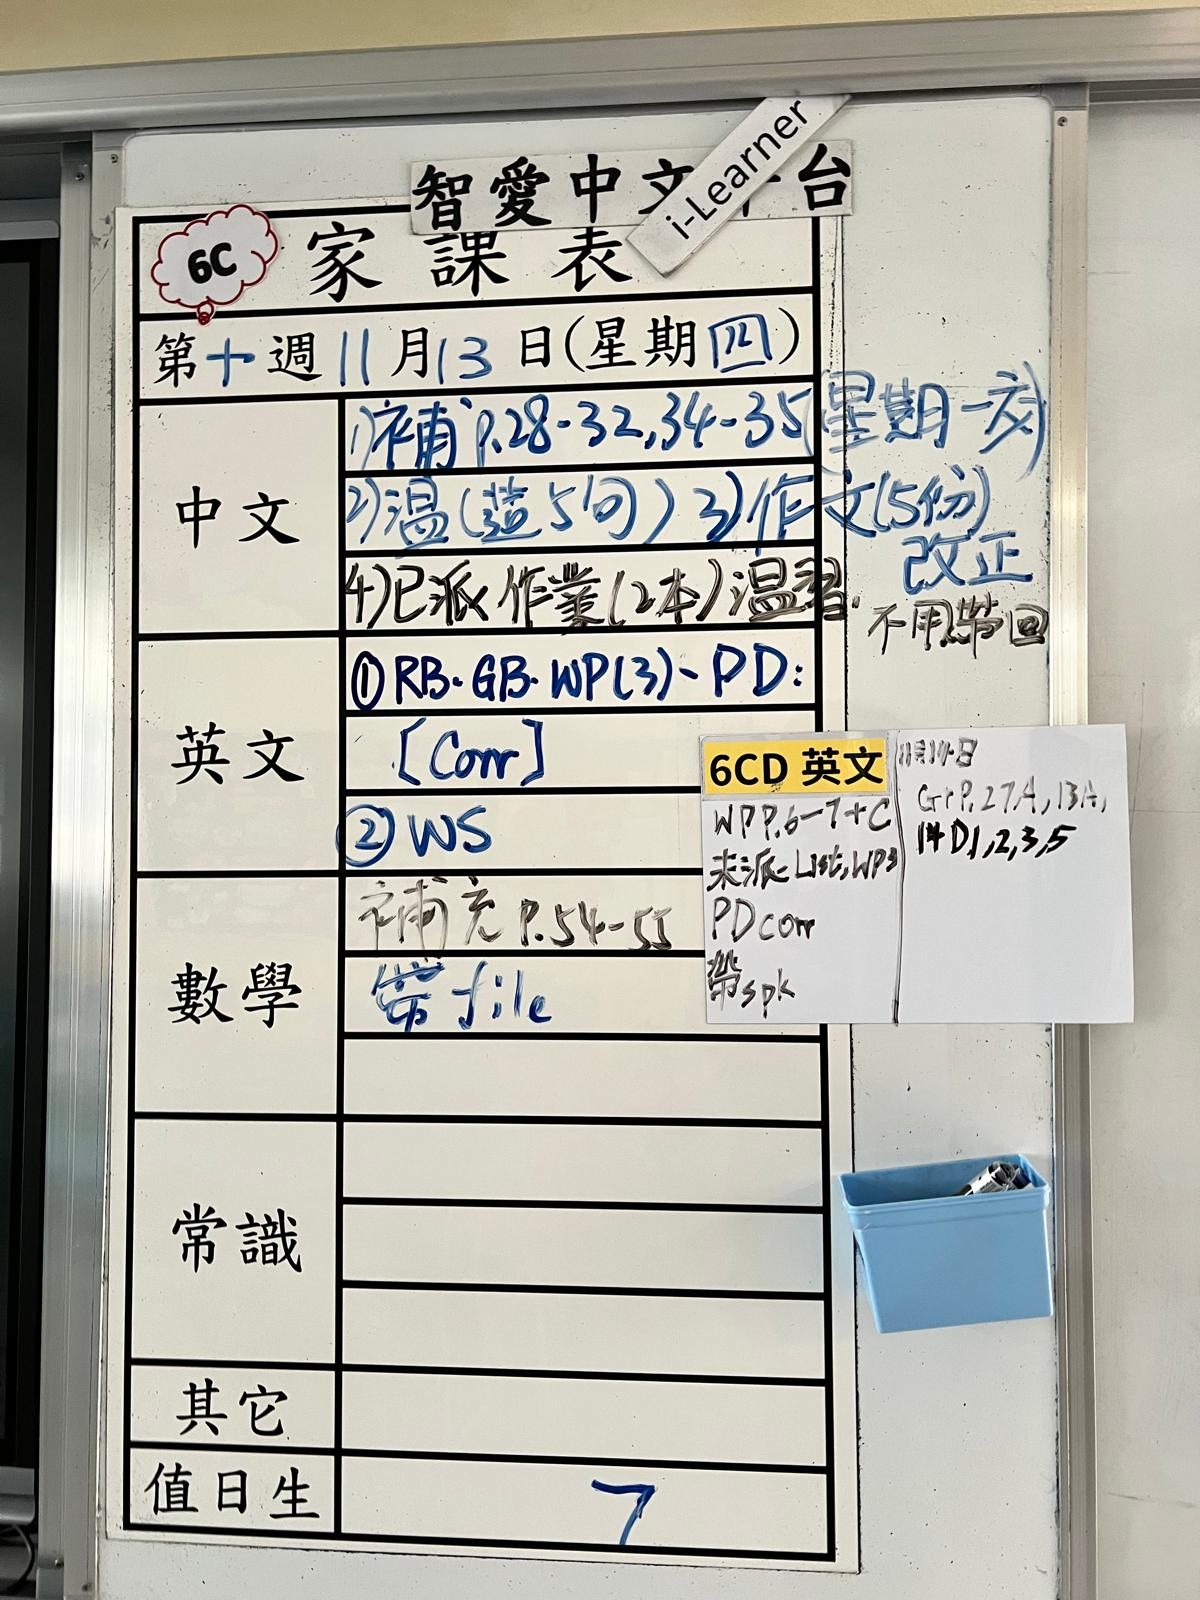 智愛中文 台
i-Learner
6C
家課表
第十週11月13日(星期四)
中文
1)補 P.28-32,34-35(星期一交)
2)温(造5句) 3)作文(5份)
改正
4)已派作業(2本)温習
不用帶回
英文
①RB. GB. WP(3)、PD:
[Corr]
②WS
6CD 英文
WP P.6-7+C
未派: List, WP3
PD corr
帶spk
11月14日
Gr P.27A, 13A,
14 D1,2,3,5
數學
補充 P.54-55
帶file
常識
其它
值日生
7